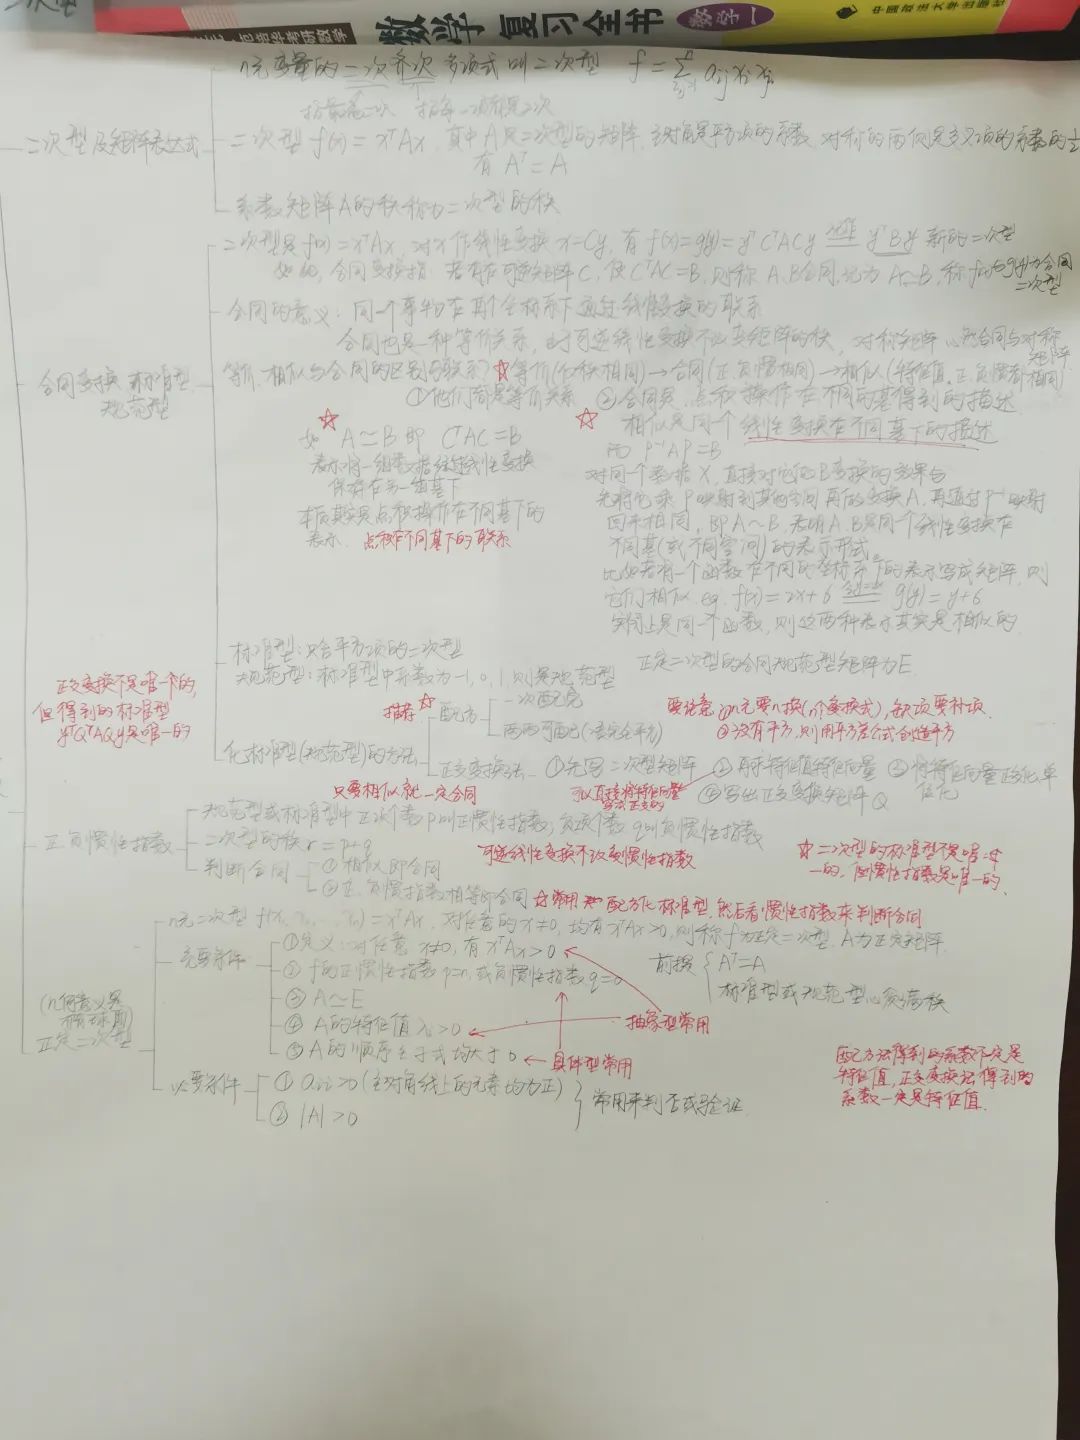 数学复习全书 数学一
中国政法大学出版社
n元变量的二次齐次多项式叫二次型 f=Σaijxixj
指最高二次 指每一项都是二次
二次型及矩阵表达式
二次型 f(x)=xᵀAx, 其中A是二次型的矩阵, 主对角是平方项的系数, 对称的两侧是交叉项的系数的1/2
有 Aᵀ=A
系数矩阵A的秩称为二次型的秩
二次型是 f(x)=xᵀAx, 对x作线性变换 x=Cy, 有 f(x)=g(y)=yᵀCᵀACy 记作 yᵀBy 新的二次型
合同变换指 若存在可逆矩阵C, 使CᵀAC=B, 则称A、B合同, 记为A≃B, 称f(x)与g(y)为合同
二次型
合同的意义: 同一个事物在两个坐标系下通过线性变换的联系
合同也是一种等价关系, 由于可逆线性变换不改变矩阵的秩, 对称矩阵必然合同与对称
矩阵
合同变换 标准型
规范型
等价,相似与合同的区别与联系? ☆等价(仅秩相同)→合同(正、负惯相同)→相似(特征值、正、负惯都相同)
①他们都是等价关系 ②合同是:点积操作在不同的基得到的描述
☆ 相似是同一个线性变换在不同基下的描述
☆
如 A≃B 即 CᵀAC=B
而 P⁻¹AP=B
表示将一组数据经过线性变换
保存在另一组基下
对同一个数据X, 直接对它使B变换的效果与
先将它乘P映射到其他空间再做变换A, 再通过P⁻¹映射
本质其实是点积操作在不同基下的
回来相同, 即A~B, 表明A、B是同一个线性变换在
表示. 点积在不同基下的联系
不同基(或不同空间)的表示形式。
比如若有一个函数在不同的坐标系下的表示写成矩阵, 则
它们相似. eg. f(x)=2x+6 g(y)=y+6
实际上是同一个函数, 则这两种表示其实是相似的.
标准型: 只含平方项的二次型
正定二次型的合同规范型矩阵为E.
规范型: 标准型中系数为-1, 0, 1, 则是规范型
正交变换不是唯一的,
但得到的标准型
yᵀQᵀAQy是唯一的
化标准型(规范型)的方法
推荐☆
配方
一次配完
两两可配(凑完全平方)
要注意 ①n元要n换(n个变换式), 缺项要补项.
②没有平方, 则用平方差公式创造平方
正交变换法 ①先写二次型矩阵 ②再求特征值特征向量 ③将特征向量正交化单
位化
④写出正交变换矩阵Q
只要相似就一定合同
正.负惯性指数
规范型或标准型中正项个数p叫正惯性指数, 负项个数q叫负惯性指数
二次型的秩 r=p+q
可逆线性变换不改变惯性指数
☆二次型的标准型不是唯一
一的, 但惯性指数是唯一的.
判断合同
①相似即合同
②正、负惯指数相等即合同 ☆常用 配方化标准型, 然后看惯性指数来判断合同
n元二次型 f(x₁, x₂, … xₙ)=xᵀAx, 对任意的x≠0, 均有xᵀAx>0, 则称f为正定二次型. A为正定矩阵.
充要条件
①定义: 对任意x≠0, 有xᵀAx>0
②f的正惯性指数p=n, 或负惯性指数q=0
③A≃E
④A的特征值λi>0
⑤A的顺序主子式均大于0
前提 Aᵀ=A
标准型或规范型必须满秩
抽象型常用
具体型常用
(几何意义是
椭球面)
正定二次型
配方法得到的系数不一定是
特征值, 正交变换法得到的
系数一定是特征值.
必要条件
①aii>0(主对角线上的元素均为正)
②|A|>0
常用来判否或验证